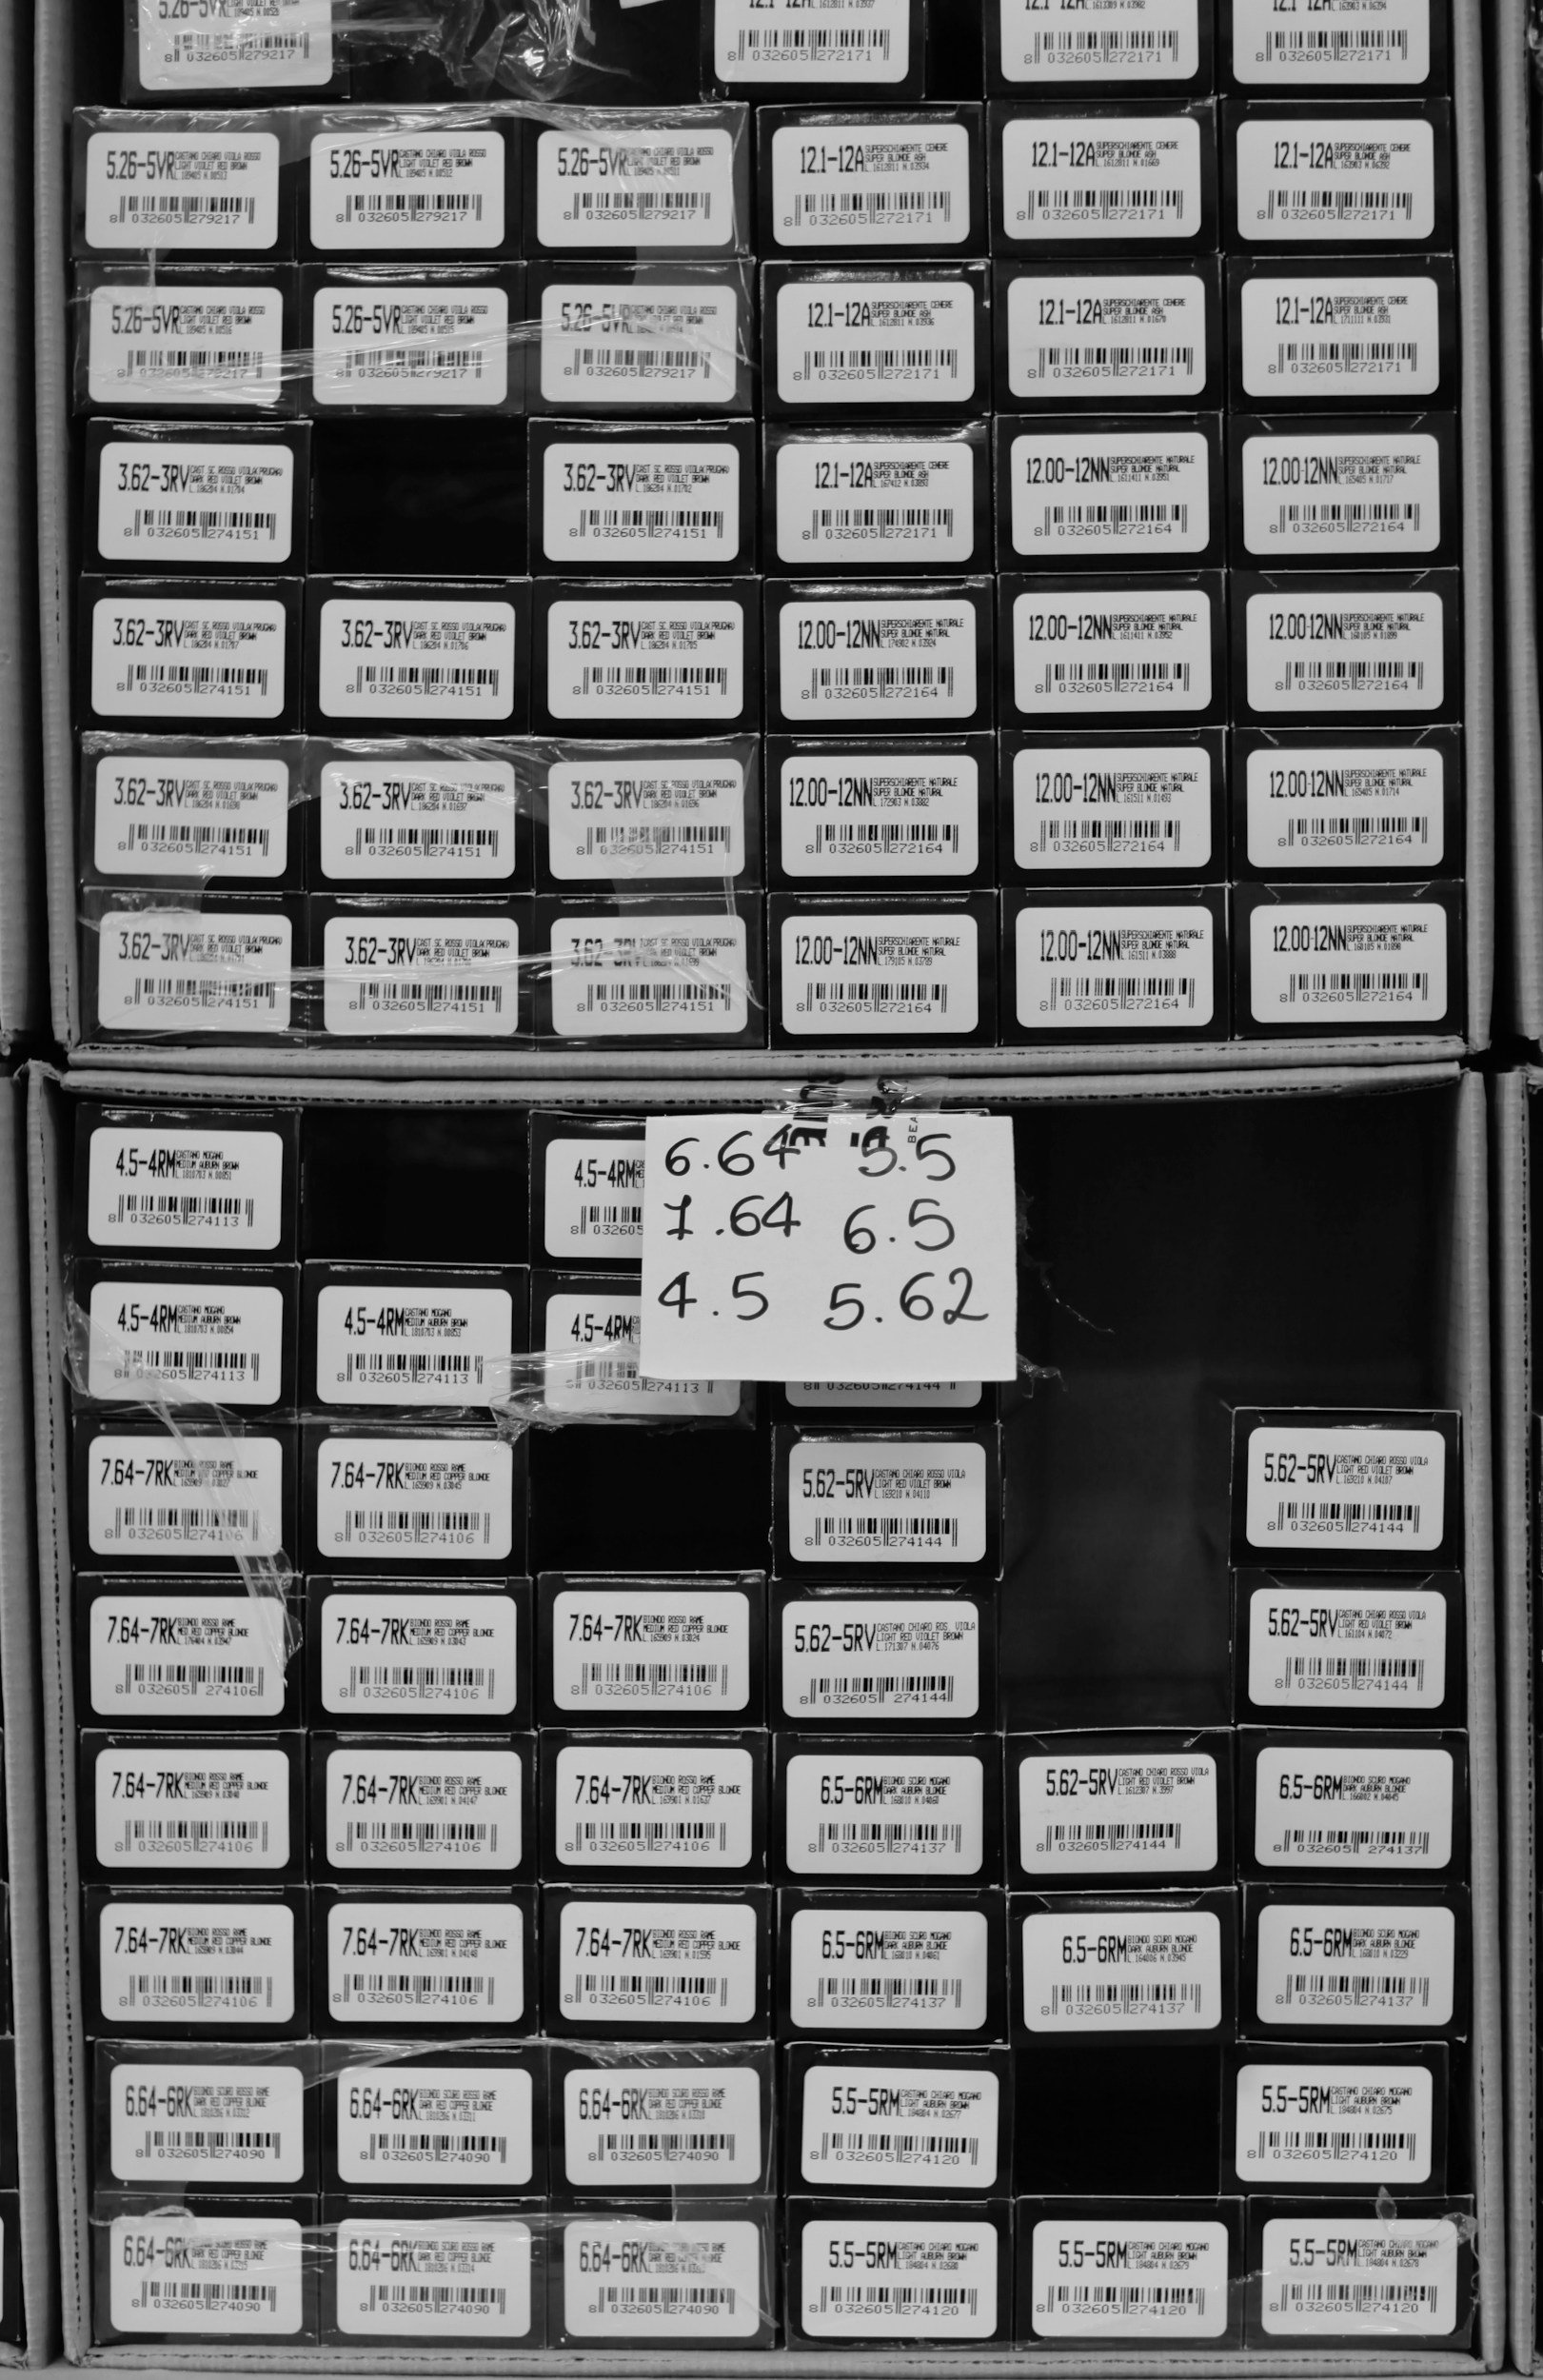 5.26-5VR
8 032605 279217
8 032605 272171
8 032605 272171
8 032605 272171
5.26-5VR CASTANO CHIARO VIOLA ROSSO
LIGHT VIOLET RED BROWN
8 032605 279217
5.26-5VR CASTANO CHIARO VIOLA ROSSO
LIGHT VIOLET RED BROWN
8 032605 279217
5.26-5VR CASTANO CHIARO VIOLA ROSSO
LIGHT VIOLET RED BROWN
8 032605 279217
12.1-12A SUPERSCHIARENTE CENERE
SUPER BLONDE ASH
8 032605 272171
12.1-12A SUPERSCHIARENTE CENERE
SUPER BLONDE ASH
8 032605 272171
12.1-12A SUPERSCHIARENTE CENERE
SUPER BLONDE ASH
8 032605 272171
5.26-5VR CASTANO CHIARO VIOLA ROSSO
LIGHT VIOLET RED BROWN
8 032605 279217
5.26-5VR CASTANO CHIARO VIOLA ROSSO
LIGHT VIOLET RED BROWN
8 032605 279217
5.26-5VR CASTANO CHIARO VIOLA ROSSO
8 032605 279217
12.1-12A SUPERSCHIARENTE CENERE
SUPER BLONDE ASH
8 032605 272171
12.1-12A SUPERSCHIARENTE CENERE
SUPER BLONDE ASH
8 032605 272171
12.1-12A SUPERSCHIARENTE CENERE
SUPER BLONDE ASH
8 032605 272171
3.62-3RV CAST SC. ROSSO VIOLA(PRUGNA)
DARK RED VIOLET BROWN
8 032605 274151
3.62-3RV CAST SC. ROSSO VIOLA(PRUGNA)
DARK RED VIOLET BROWN
8 032605 274151
12.1-12A SUPERSCHIARENTE CENERE
SUPER BLONDE ASH
8 032605 272171
12.00-12NN SUPERSCHIARENTE NATURALE
SUPER BLONDE NATURAL
8 032605 272164
12.00-12NN SUPERSCHIARENTE NATURALE
SUPER BLONDE NATURAL
8 032605 272164
3.62-3RV CAST SC. ROSSO VIOLA(PRUGNA)
DARK RED VIOLET BROWN
8 032605 274151
3.62-3RV CAST SC. ROSSO VIOLA(PRUGNA)
DARK RED VIOLET BROWN
8 032605 274151
3.62-3RV CAST SC. ROSSO VIOLA(PRUGNA)
DARK RED VIOLET BROWN
8 032605 274151
12.00-12NN SUPERSCHIARENTE NATURALE
SUPER BLONDE NATURAL
8 032605 272164
12.00-12NN SUPERSCHIARENTE NATURALE
SUPER BLONDE NATURAL
8 032605 272164
12.00-12NN SUPERSCHIARENTE NATURALE
SUPER BLONDE NATURAL
8 032605 272164
3.62-3RV CAST SC. ROSSO VIOLA(PRUGNA)
DARK RED VIOLET BROWN
8 032605 274151
3.62-3RV CAST SC. ROSSO VIOLA(PRUGNA)
DARK RED VIOLET BROWN
8 032605 274151
3.62-3RV CAST SC. ROSSO VIOLA(PRUGNA)
DARK RED VIOLET BROWN
8 032605 274151
12.00-12NN SUPERSCHIARENTE NATURALE
SUPER BLONDE NATURAL
8 032605 272164
12.00-12NN SUPERSCHIARENTE NATURALE
SUPER BLONDE NATURAL
8 032605 272164
12.00-12NN SUPERSCHIARENTE NATURALE
SUPER BLONDE NATURAL
8 032605 272164
3.62-3RV CAST SC. ROSSO VIOLA(PRUGNA)
DARK RED VIOLET BROWN
8 032605 274151
3.62-3RV CAST SC. ROSSO VIOLA(PRUGNA)
DARK RED VIOLET BROWN
8 032605 274151
3.62-3RV CAST SC. ROSSO VIOLA(PRUGNA)
DARK RED VIOLET BROWN
8 032605 274151
12.00-12NN SUPERSCHIARENTE NATURALE
SUPER BLONDE NATURAL
8 032605 272164
12.00-12NN SUPERSCHIARENTE NATURALE
SUPER BLONDE NATURAL
8 032605 272164
12.00-12NN SUPERSCHIARENTE NATURALE
SUPER BLONDE NATURAL
8 032605 272164
4.5-4RM CASTANO MOGANO
MEDIUM AUBURN BROWN
8 032605 274113
4.5-4RM
8 032605
6.64 5.5
7.64 6.5
4.5 5.62
4.5-4RM CASTANO MOGANO
MEDIUM AUBURN BROWN
8 032605 274113
4.5-4RM CASTANO MOGANO
MEDIUM AUBURN BROWN
8 032605 274113
4.5-4RM
8 032605 274113
8 032605 274144
7.64-7RK BIONDO ROSSO RAME
MEDIUM RED COPPER BLONDE
8 032605 274106
7.64-7RK BIONDO ROSSO RAME
MEDIUM RED COPPER BLONDE
8 032605 274106
5.62-5RV CASTANO CHIARO ROSSO VIOLA
LIGHT RED VIOLET BROWN
8 032605 274144
5.62-5RV CASTANO CHIARO ROSSO VIOLA
LIGHT RED VIOLET BROWN
8 032605 274144
7.64-7RK BIONDO ROSSO RAME
MED RED COPPER BLONDE
8 032605 274106
7.64-7RK BIONDO ROSSO RAME
MEDIUM RED COPPER BLONDE
8 032605 274106
7.64-7RK BIONDO ROSSO RAME
MEDIUM RED COPPER BLONDE
8 032605 274106
5.62-5RV CASTANO CHIARO ROS. VIOLA
LIGHT RED VIOLET BROWN
L.171307 N.04076
8 032605 274144
5.62-5RV CASTANO CHIARO ROSSO VIOLA
LIGHT RED VIOLET BROWN
8 032605 274144
7.64-7RK BIONDO ROSSO RAME
MEDIUM RED COPPER BLONDE
8 032605 274106
7.64-7RK BIONDO ROSSO RAME
MEDIUM RED COPPER BLONDE
8 032605 274106
7.64-7RK BIONDO ROSSO RAME
MEDIUM RED COPPER BLONDE
8 032605 274106
6.5-6RM BIONDO SCURO MOGANO
DARK AUBURN BLONDE
8 032605 274137
5.62-5RV CASTANO CHIARO ROSSO VIOLA
LIGHT RED VIOLET BROWN
8 032605 274144
6.5-6RM BIONDO SCURO MOGANO
DARK AUBURN BLONDE
8 032605 274137
7.64-7RK BIONDO ROSSO RAME
MEDIUM RED COPPER BLONDE
8 032605 274106
7.64-7RK BIONDO ROSSO RAME
MEDIUM RED COPPER BLONDE
8 032605 274106
7.64-7RK BIONDO ROSSO RAME
MEDIUM RED COPPER BLONDE
8 032605 274106
6.5-6RM BIONDO SCURO MOGANO
DARK AUBURN BLONDE
8 032605 274137
6.5-6RM BIONDO SCURO MOGANO
DARK AUBURN BLONDE
8 032605 274137
6.5-6RM BIONDO SCURO MOGANO
DARK AUBURN BLONDE
8 032605 274137
6.64-6RK BIONDO SCURO ROSSO RAME
DARK RED COPPER BLONDE
8 032605 274090
6.64-6RK BIONDO SCURO ROSSO RAME
DARK RED COPPER BLONDE
8 032605 274090
6.64-6RK BIONDO SCURO ROSSO RAME
DARK RED COPPER BLONDE
8 032605 274090
5.5-5RM CASTANO CHIARO MOGANO
LIGHT AUBURN BROWN
8 032605 274120
5.5-5RM CASTANO CHIARO MOGANO
LIGHT AUBURN BROWN
8 032605 274120
6.64-6RK
DARK RED COPPER BLONDE
8 032605 274090
6.64-6RK BIONDO SCURO ROSSO RAME
DARK RED COPPER BLONDE
8 032605 274090
6.64-6RK
8 032605 274090
5.5-5RM CASTANO CHIARO MOGANO
LIGHT AUBURN BROWN
8 032605 274120
5.5-5RM CASTANO CHIARO MOGANO
LIGHT AUBURN BROWN
8 032605 274120
5.5-5RM CASTANO CHIARO MOGANO
LIGHT AUBURN BROWN
8 032605 274120